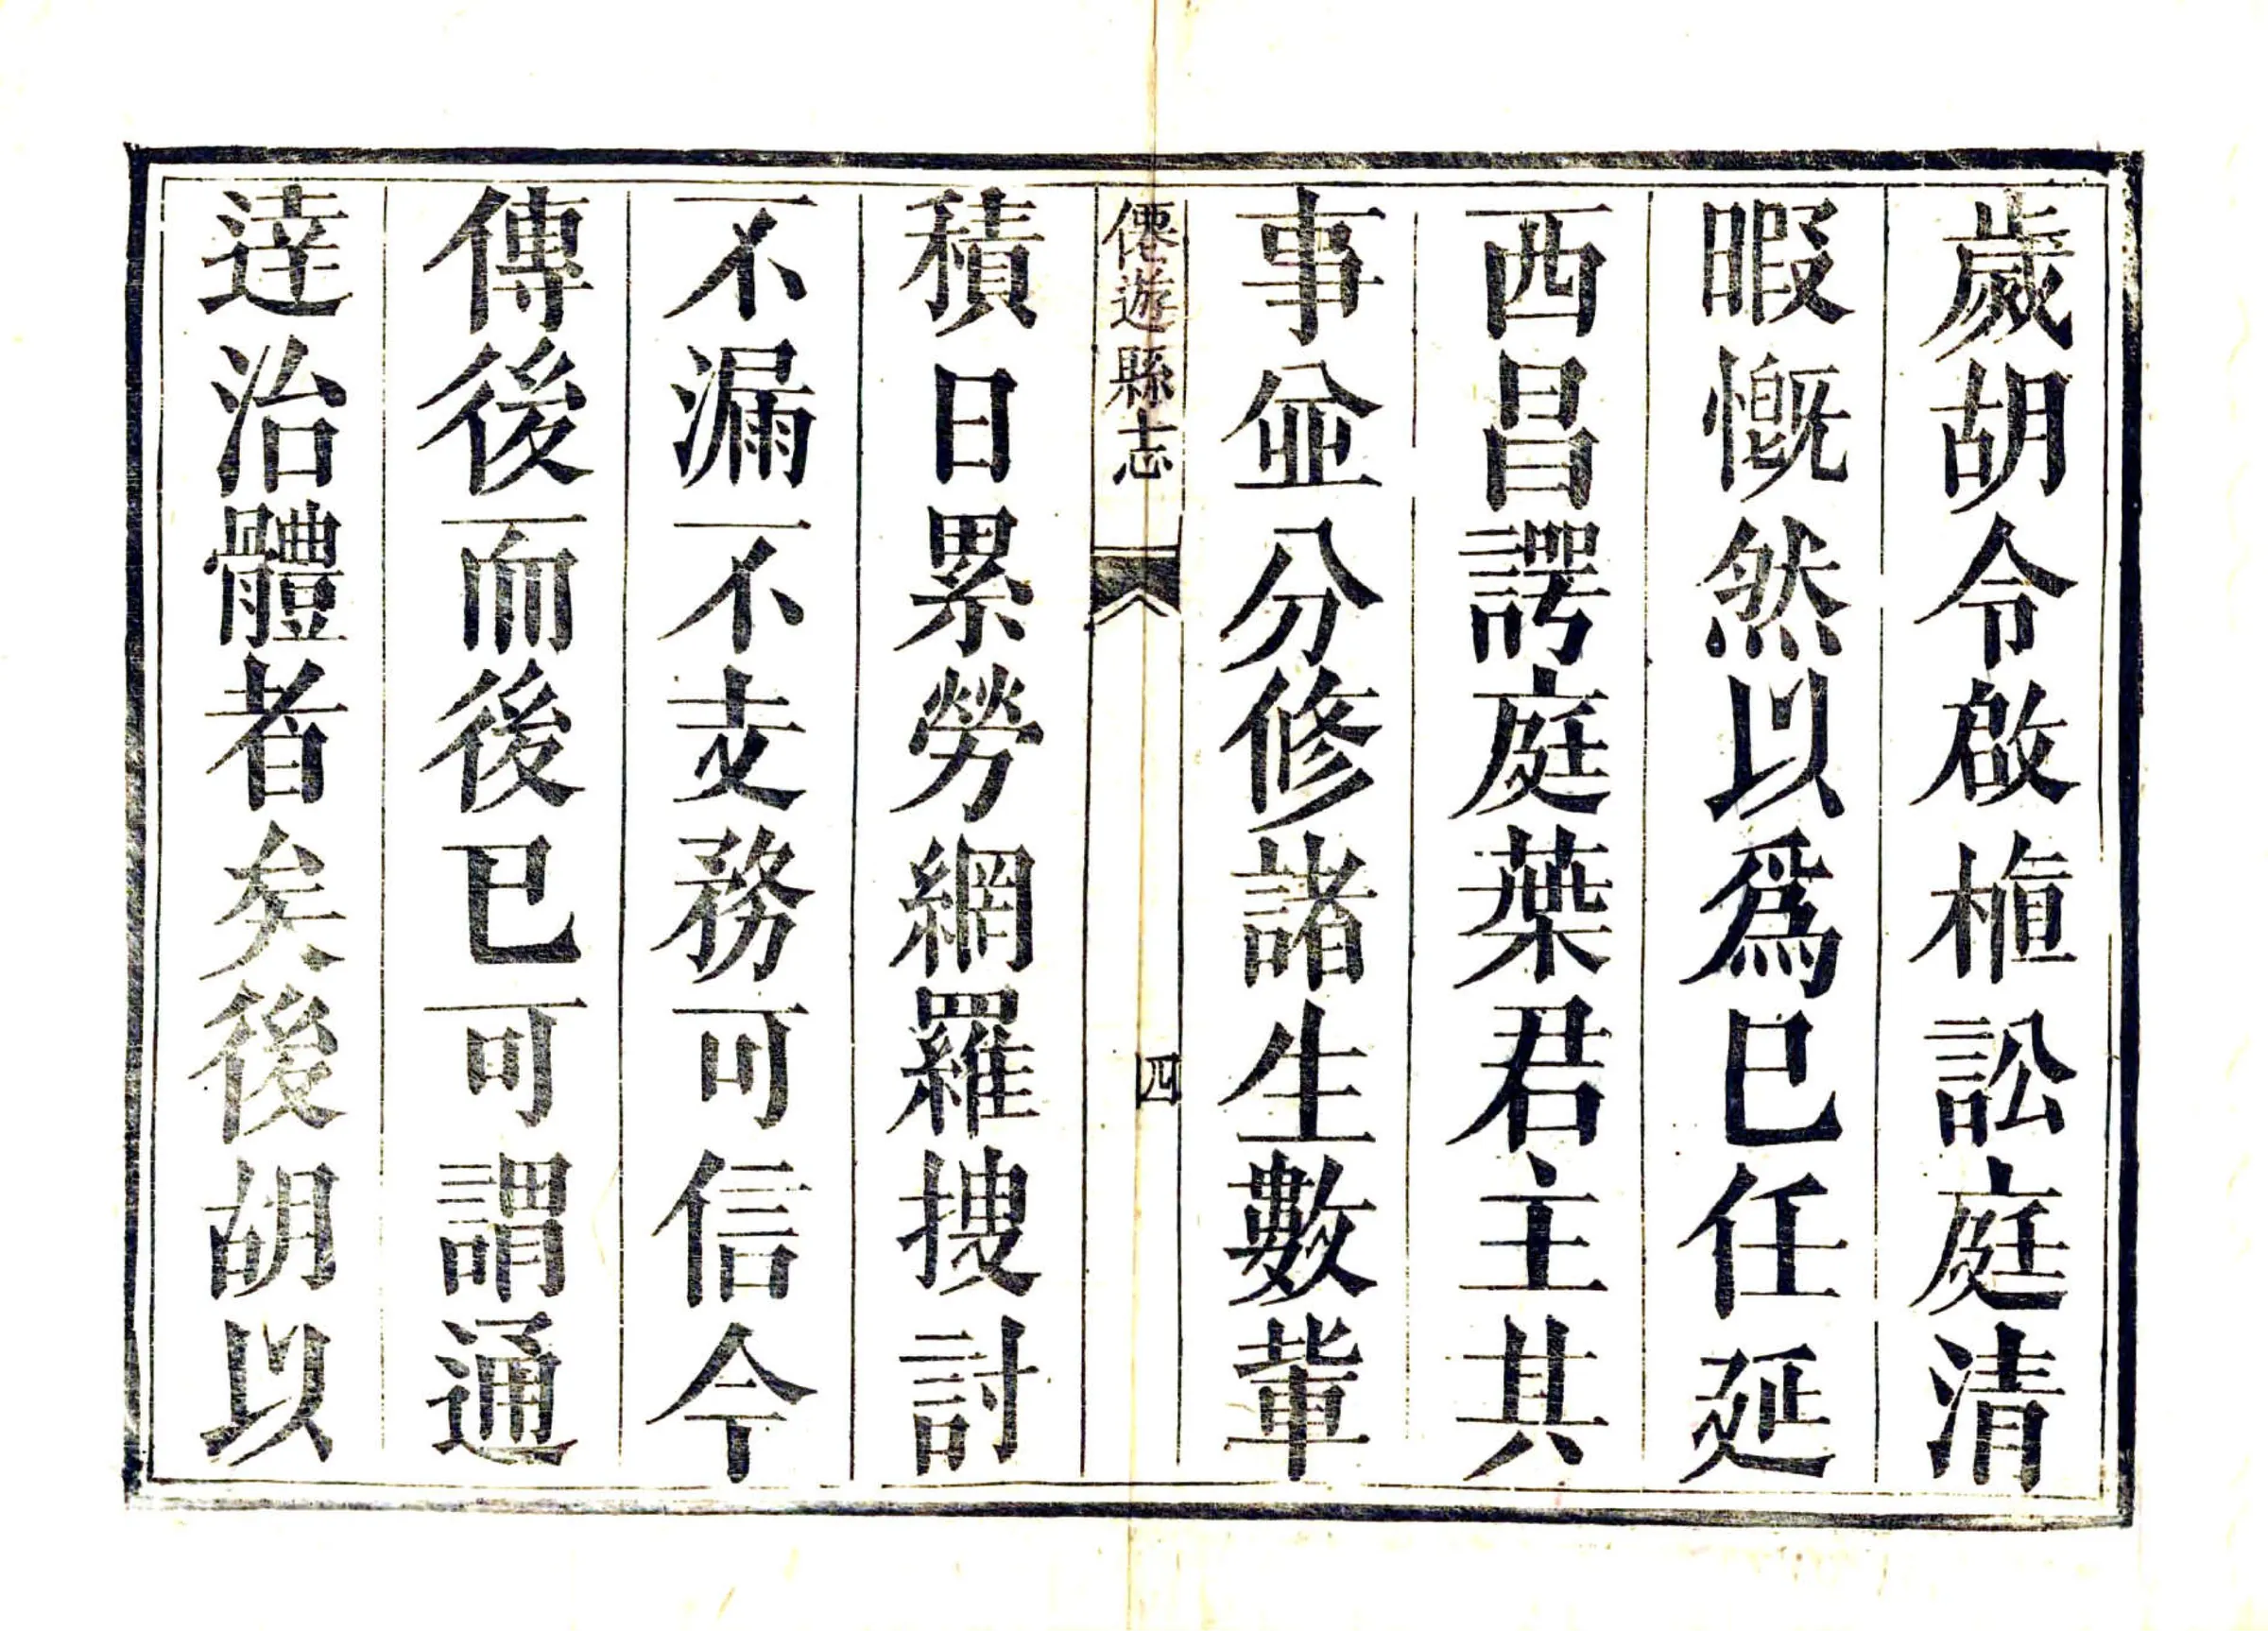 歲胡令啟植訟庭清
暇慨然以爲巳任延
西昌諤庭葉君主其
事並分修諸生數軰
僊遊縣志
四
積日累勞網羅搜討
不漏不支務可信今
傳後而後巳可謂通
達治體者矣後胡以